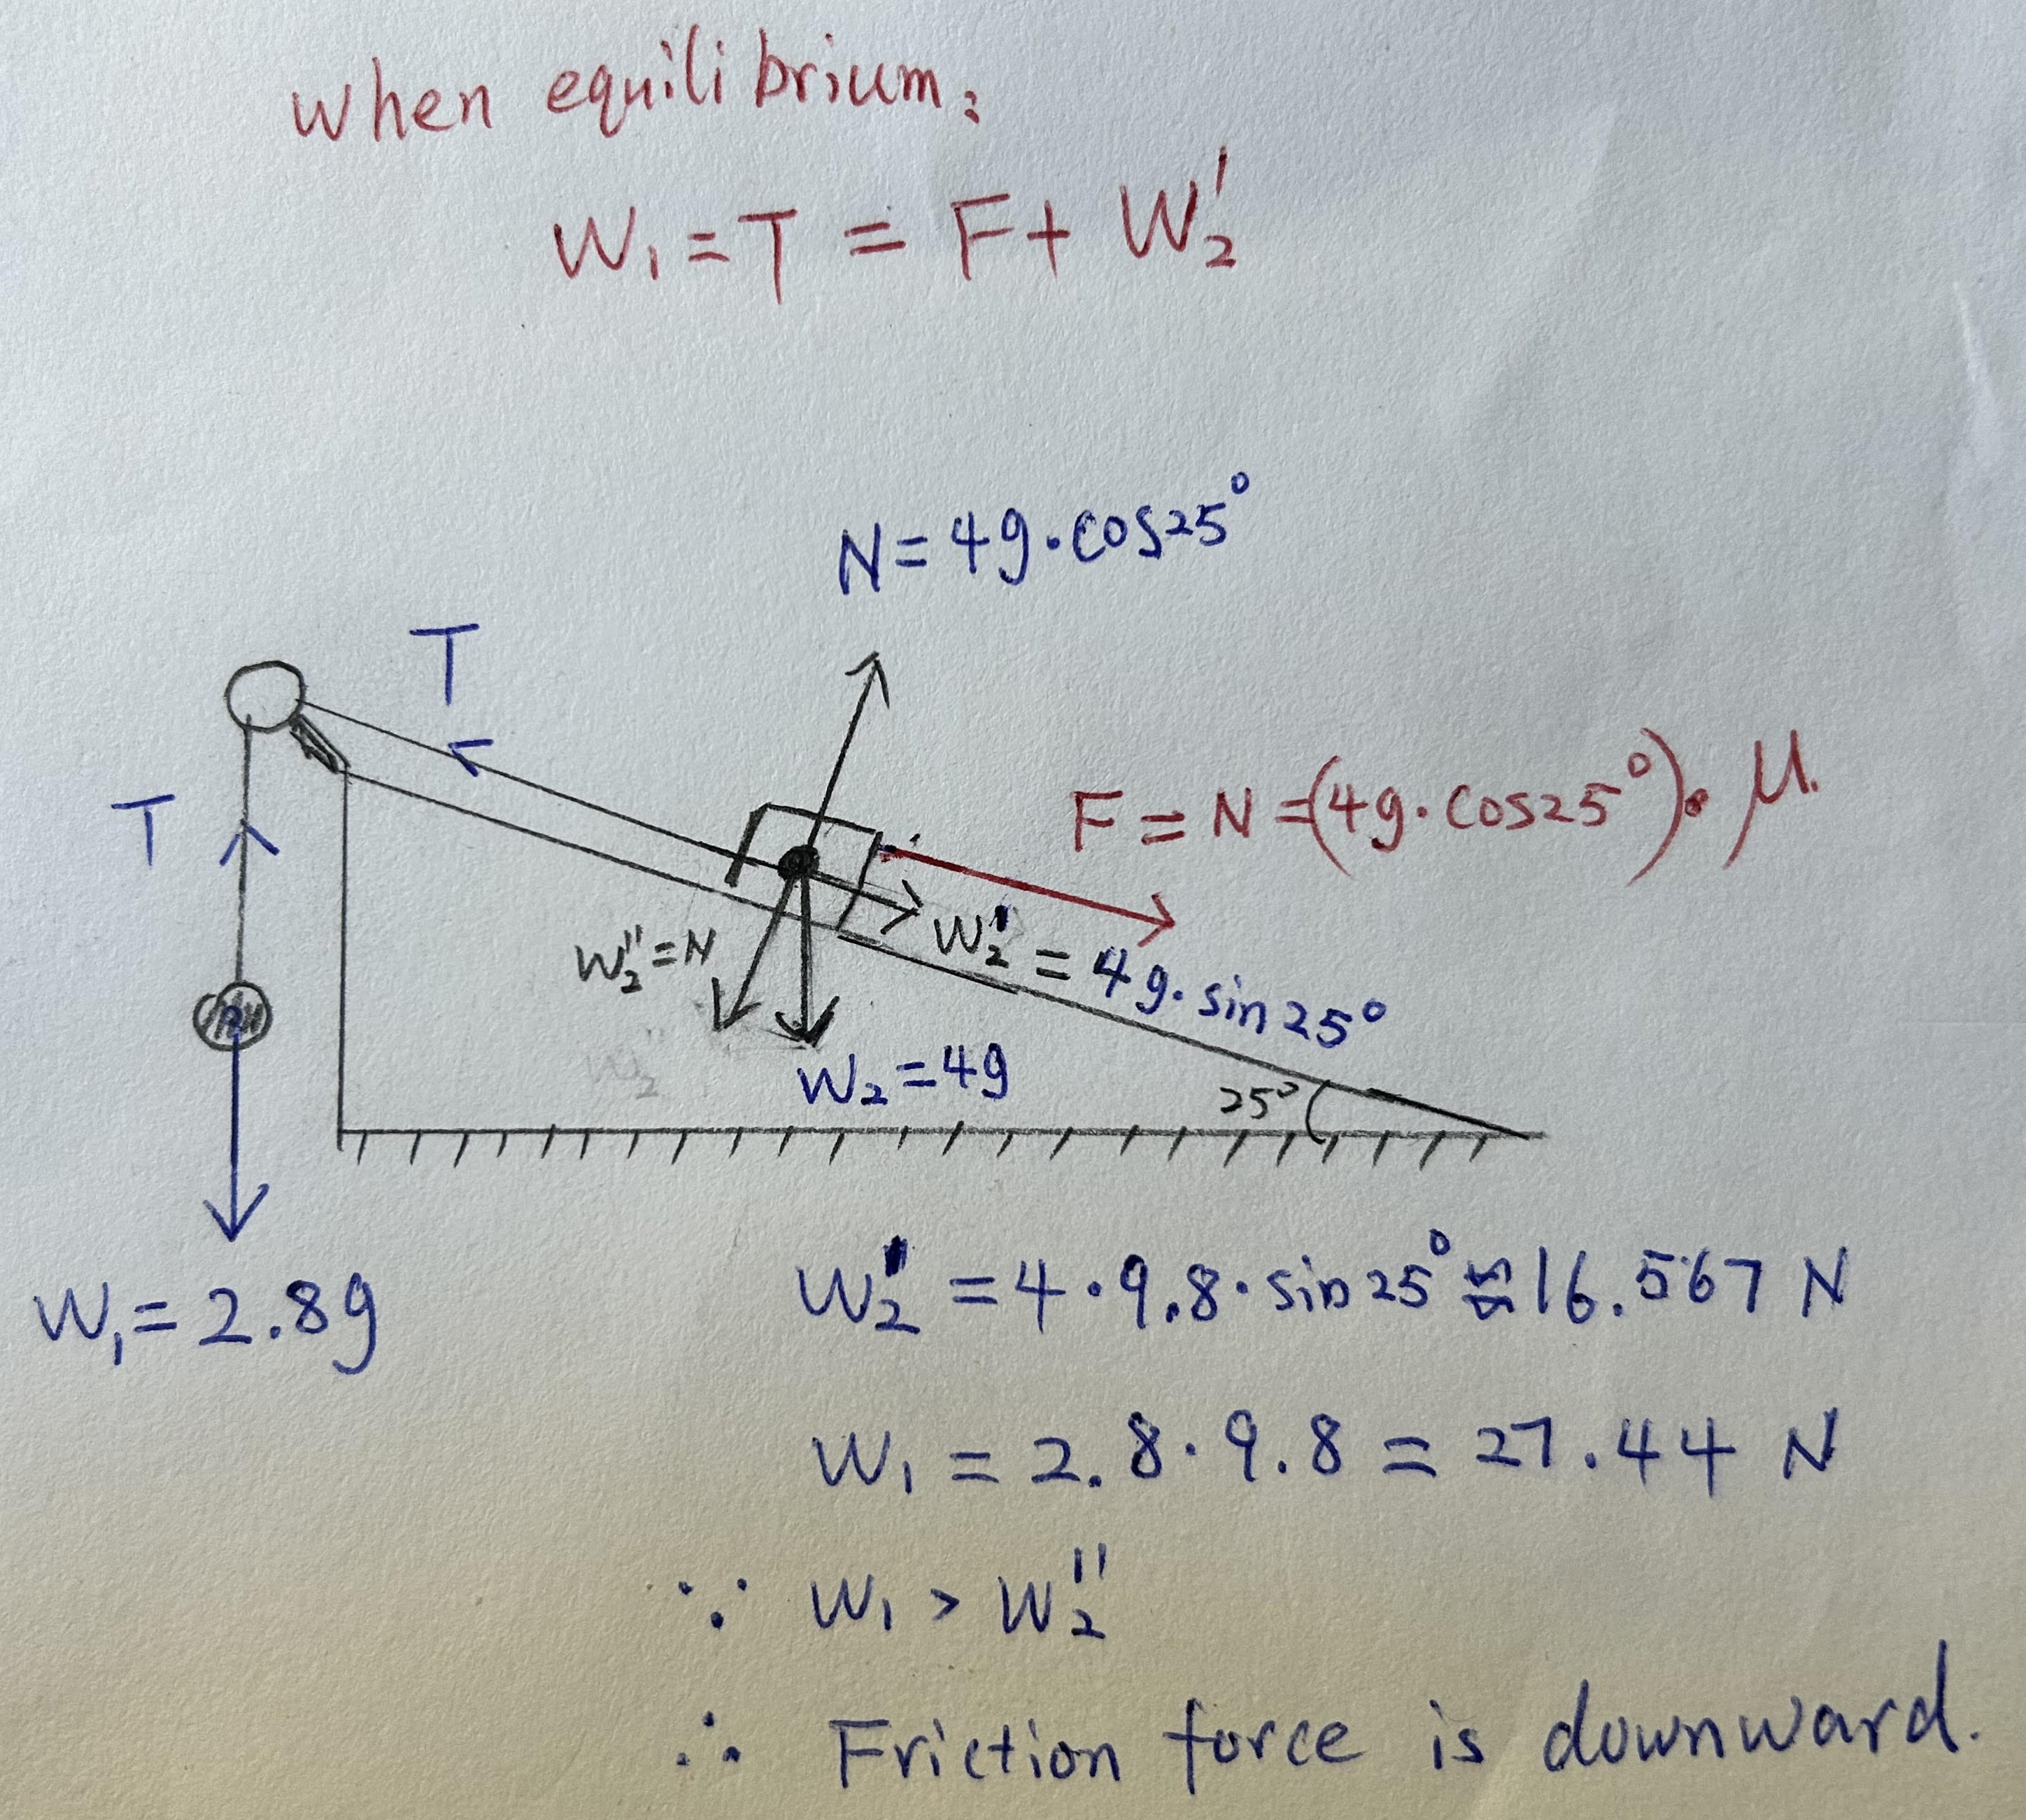 When equilibrium:
W₁ = T = F + W₂'
N = 4g·cos25°
T
T
F = N = (4g·cos25°)·μ.
W₂'' = N
W₂' = 4g·sin25°
W₂ = 4g
25°
W₁ = 2.8g
W₂' = 4·9.8·sin25° ≈ 16.567 N
W₁ = 2.8·9.8 = 27.44 N
∵ W₁ > W₂''
∴ Friction force is downward.